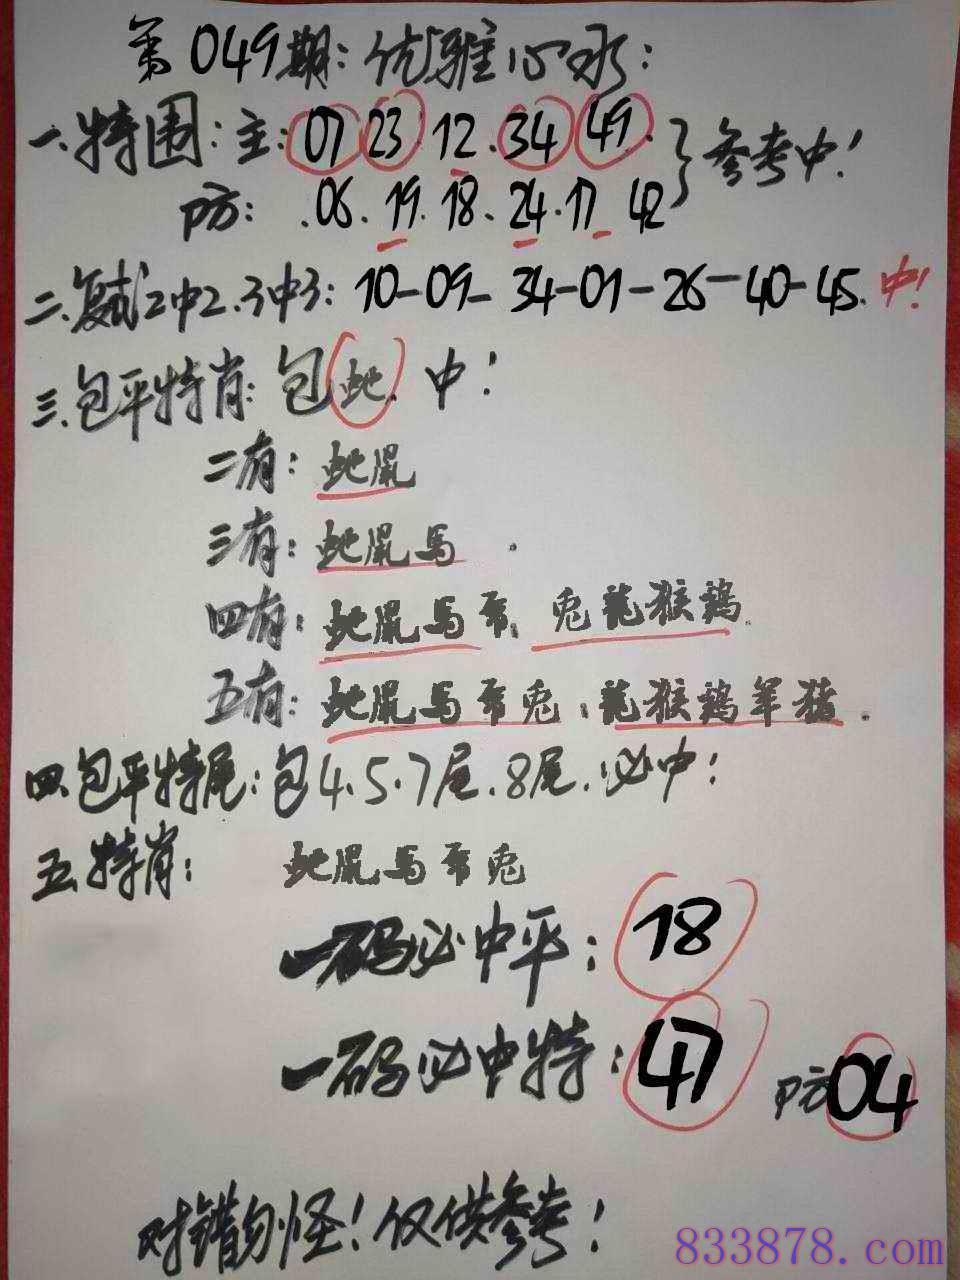 第049期：优雅心水：
一.特围：主：07 23 12.34 49. 参考中！
防：.06.19.18.24.17 42
二.复式2中2.3中3：10-09-34-01-26-40-45.中！
三.包平特肖：包蛇.中！
二有：蛇鼠
三有：蛇鼠马.
四有：蛇鼠马 兔龍猴鷄.
五有：蛇鼠马 兔.龍猴鷄羊猪.
四.包平特尾：包4.5.7尾.8尾.必中！
五.特肖：蛇鼠马 兔
一码必中平：18
一码必中特：47 防04
对错勿怪！仅供参考！
833878.com